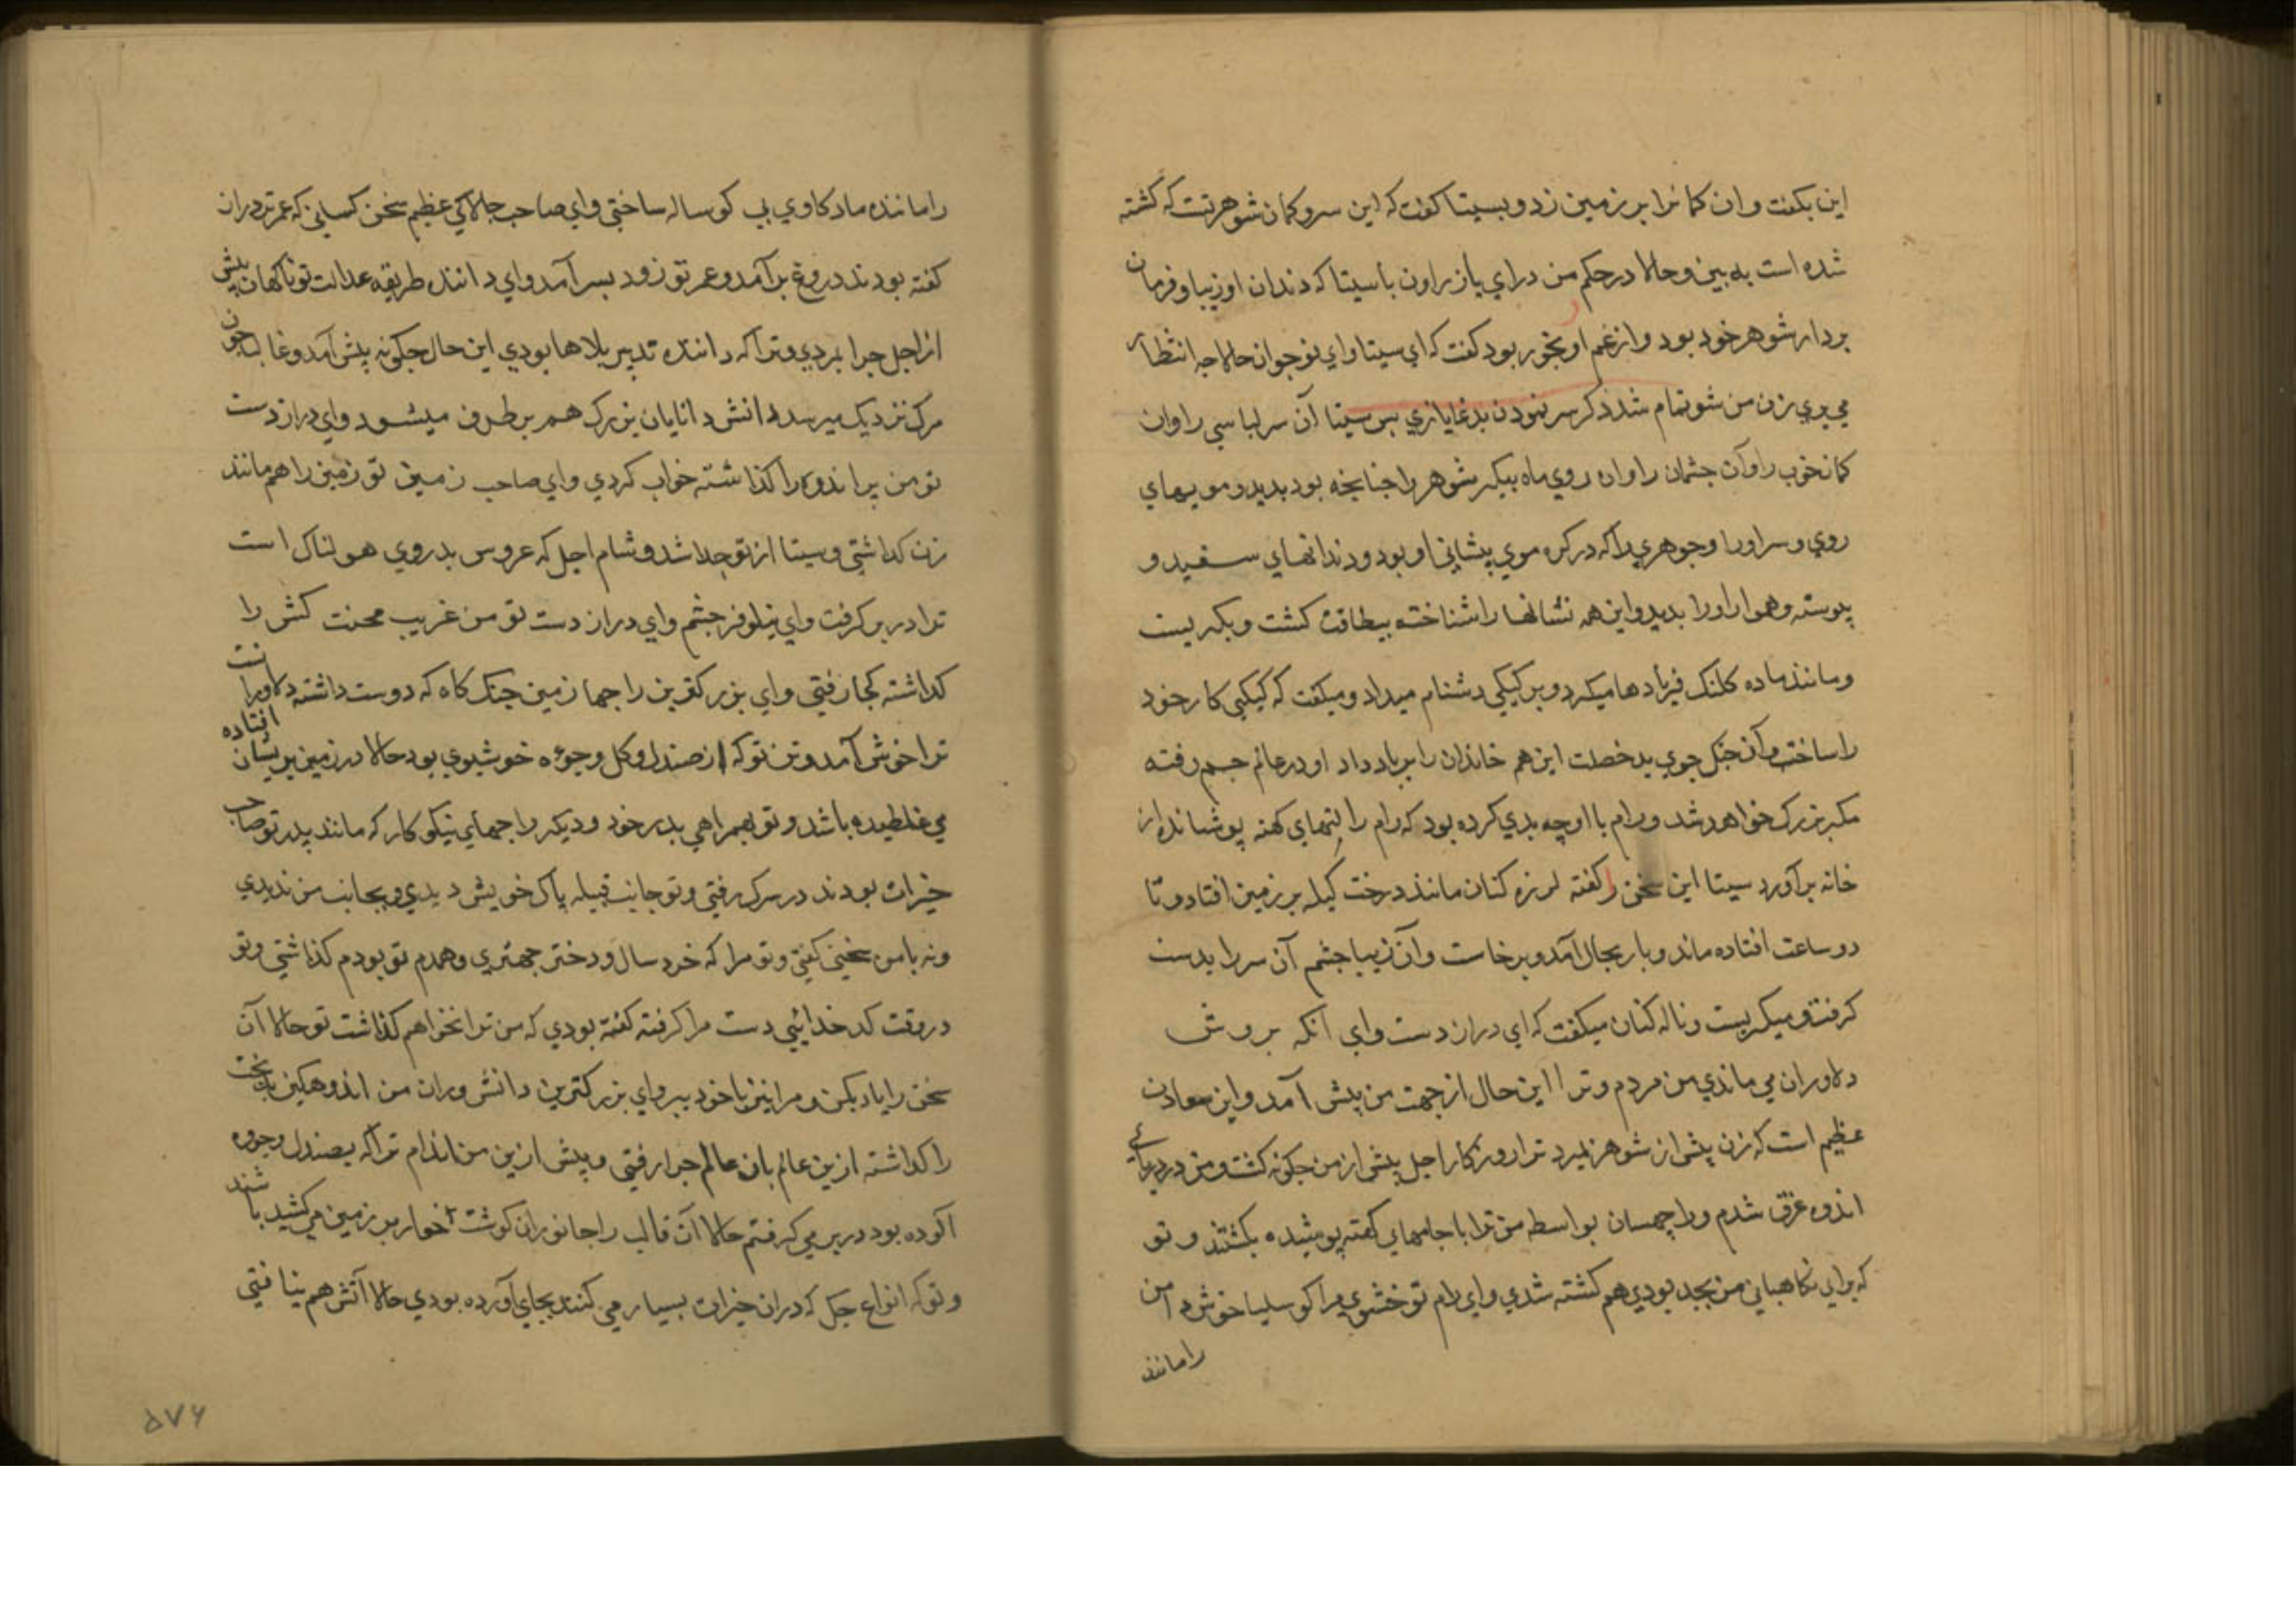 این بکفت و ان کمانرا بر زمین زد و بسیتا کفت که این سر و کمان شوهر تست که کشته
شده است به بین و حالا در حکم من درای باز راون با سیتا که دندان او زیبا و فرمان
بردار شوهر خود بود و از غم او بخور بود کفت که ای سیتا و ای نوجوان حالا چه انتظار
می بری زن من شو تمام شد ذکر سر نمودن بدغابازی پس سیتا آن سر لباسی را و ان
کمان خوب را و آن چشمان را و ان روی ماه پیکر شوهر را چنانچه بود بدید و مویهای
روی و سر او را و جوهری را که در کره موی پیشانی او بود و دندانهای سفید و
پیوسته و هموار او را بدید و این همه نشانها را شناخته بیطاقت کشت و بکریست
و مانند ماده کلنک فریادها میکرد و بر کیکی دشنام میداد و میکفت که کیکی کار خود
را ساخت و آن جنک جوی بد خصلت این همه خاندان را بر باد داد او در عالم جم رفته
مکر بزرک خواهد شد و رام با او چه بدی کرده بود که رام را لتهای کهنه پوشانده از
خانه برآورد سیتا این سخن را کفته لرزه کنان مانند درخت کیله بر زمین افتاد و تا
دو ساعت افتاده ماند و باز بحال آمد و برخاست و آن زیبا چشم آن سر را بدست
کرفت و میکریست و ناله کنان میکفت که ای دراز دست و ای آنکه بر وش
دلاوران می ماندی من مردم و ترا این حال از جهت من پیش آمد و این
عظیم است که زن پیش از شوهر نمیرد ترا روزکار اجل پیش از من چکونه کشت و من در دریای
اندوه غرق شدم و راچهسان بواسطه من ترا با جامهای کهنه پوشیده بکشتند و تو
که برای نکاهبانی من بجد بودی هم کشته شدی و ای رام تو خشوی مرا کوسلیا خوش دامن
را مانند
را مانند ماده کاوی بی کوساله ساختی و ای صاحب چالاکی عظیم سخن کسانی که عمر تو دراز
کفته بودند دروغ برآمد و عمر تو زود بسر آمد و ای داننده طریقه عدالت تو ناکهان پیش
از اجل چرا بمردی و ترا که داننده تدبیر بلاها بودی این حال چکونه پیش آمد و غالبا چون
مرک نزدیک میرسد دانش دانایان بزرک هم بر طرف میشود و ای دراز دست
تو من پر اندوه را کذاشته خواب کردی و ای صاحب زمین تو زمین را هم مانند
زن کداشتی و سیتا از تو جدا شد و شام اجل که عروس بدروی هولناک است
ترا در بر کرفت و ای نیلوفر چشم و ای دراز دست تو من غریب محنت کش را
کداشته کجا رفتی و ای بزرکترین راجها زمین جنک کاه که دوست داشته دلاورانست
ترا خوش آمد و تن تو که از صندل و کل و چوه خوشبوی بود حالا در زمین پریشان افتاده
می غلطیده باشد و تو بهمراهی پدر خود و دیکر راجهای نیکو کار که مانند پدر تو صاحب
خیرات بودند در سرک رفتی و تو جانب قبیله پاک خویش دیدی و بجانب من ندیدی
و نه با من سخنی کفتی و تو مرا که خرد سال و دختر جهتری و همدم تو بودم کذاشتی و تو
در وقت کدخدائی دست مرا کرفته کفته بودی که من ترا نخواهم کذاشت تو حالا آن
سخن را یاد بکن و مرا نیز با خود ببر و ای بزرکترین دانش وران من اندوهکین بدبخت
را کداشته ازین عالم بان عالم چرا رفتی و پیش ازین من اندام ترا که بصندل و چوه
آلوده بود در بر می کرفتم حالا آن قالب را جانوران کوشت خوار بر زمین می کشیده باشند
و تو که انواع جک که دران خیرات بسیار می کنند بجای آورده بودی حالا آتش هم نیافتی
۵۷۶